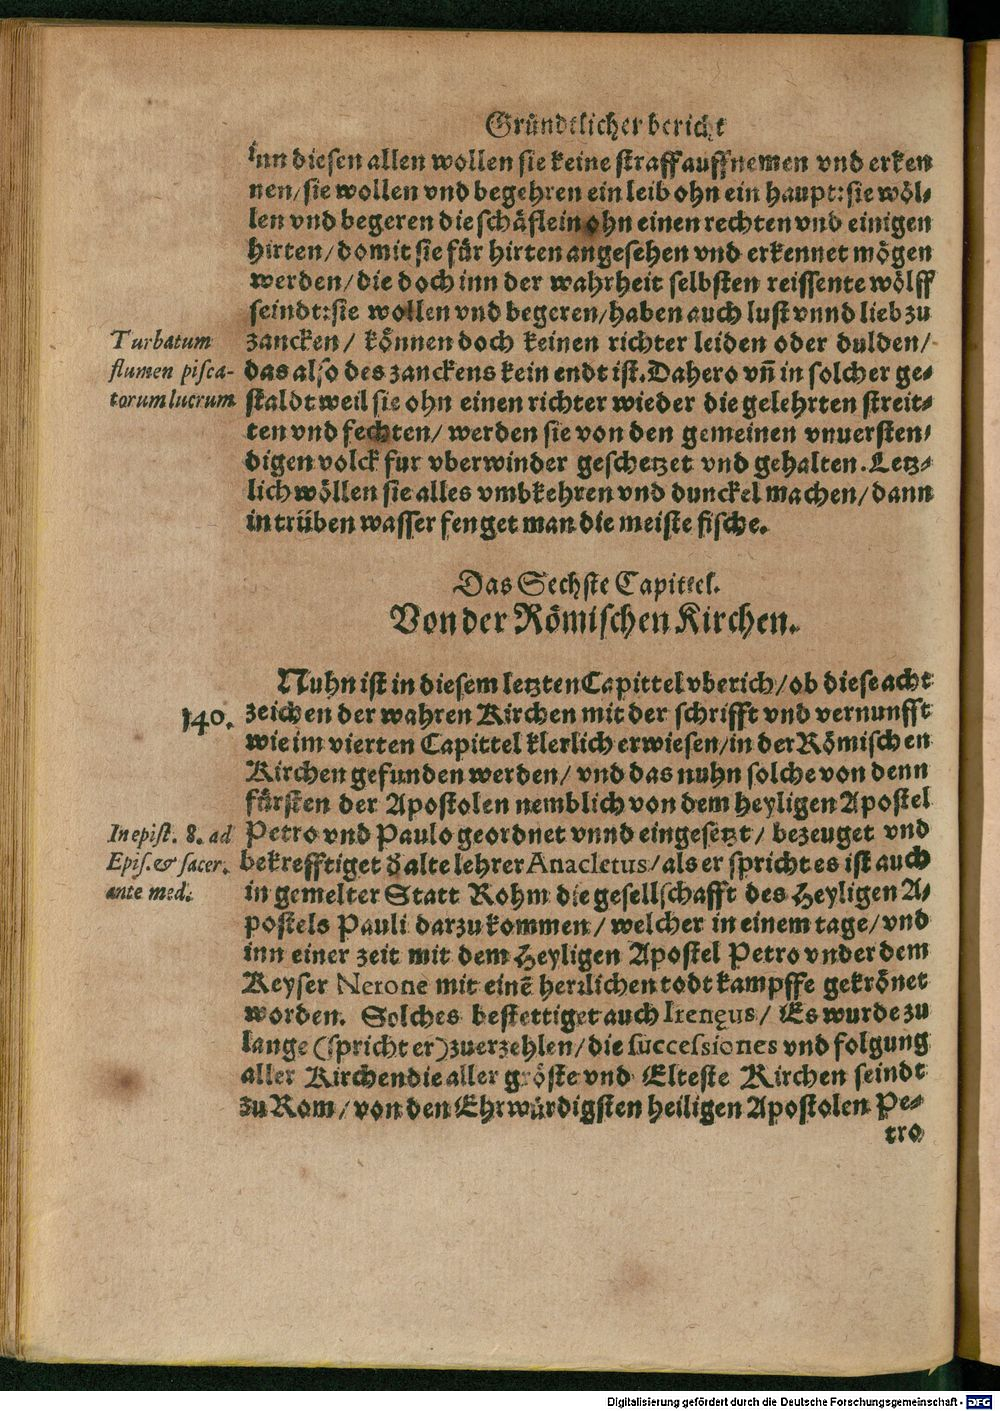 Gründtlicher bericht
inn diesen allen wollen sie keine straff auffnemen vnd erken
nen/ sie wollen vnd begehren ein leib ohn ein haupt: sie wöl-
len vnd begeren die schäflein ohn einen rechten vnd einigen
hirten/ domit sie für hirten angesehen vnd erkennet mögen
werden/ die doch inn der wahrheit selbsten reissente wölff
seindt: sie wollen vnd begeren/ haben auch lust vnnd lieb zu
zancken/ können doch keinen richter leiden oder dulden/
das also des zanckens kein endt ist. Dahero vñ in solcher ge-
staldt weil sie ohn einen richter wieder die gelehrten streit-
ten vnd fechten/ werden sie von den gemeinen vnuersten-
digen volck fur vberwinder geschetzet vnd gehalten. Letz-
lich wöllen sie alles vmbkehren vnd dunckel machen/ dann
in trüben wasser fenget man die meiste fische.
Turbatum
flumen pisca-
torum lucrum
Das Sechste Capittel.
Von der Römischen Kirchen.
Nuhn ist in diesem letzten Capittel vberich/ ob diese acht
zeichen der wahren Kirchen mit der schrifft vnd vernunfft
wie im vierten Capittel klerlich erwiesen/ in der Römischen
Kirchen gefunden werden/ vnd das nuhn solche von denn
fürsten der Apostolen nemblich von dem heyligen Apostel
Petro vnd Paulo geordnet vnnd eingesetzt/ bezeuget vnd
bekrefftiget d alte lehrer Anacletus/ als er spricht es ist auch
in gemelter Statt Rohm die gesellschafft des Heyligen A-
postels Pauli darzu kommen/ welcher in einem tage/ vnd
inn einer zeit mit dem Heyligen Apostel Petro vnder dem
Keyser Nerone mit einẽ herrlichen todt kampffe gekrönet
worden. Solches bestettiget auch Irenęus/ Es wurde zu
lange (spricht er) zuerzehlen/ die successiones vnd folgung
aller Kirchen die aller gröste vnd Elteste Kirchen seindt
zu Rom/ von den Ehrwürdigsten heiligen Apostolen Pe-
tro
140.
In epist. 8. ad
Epis. & sacer.
ante med.
Digitalisierung gefördert durch die Deutsche Forschungsgemeinschaft - DFG